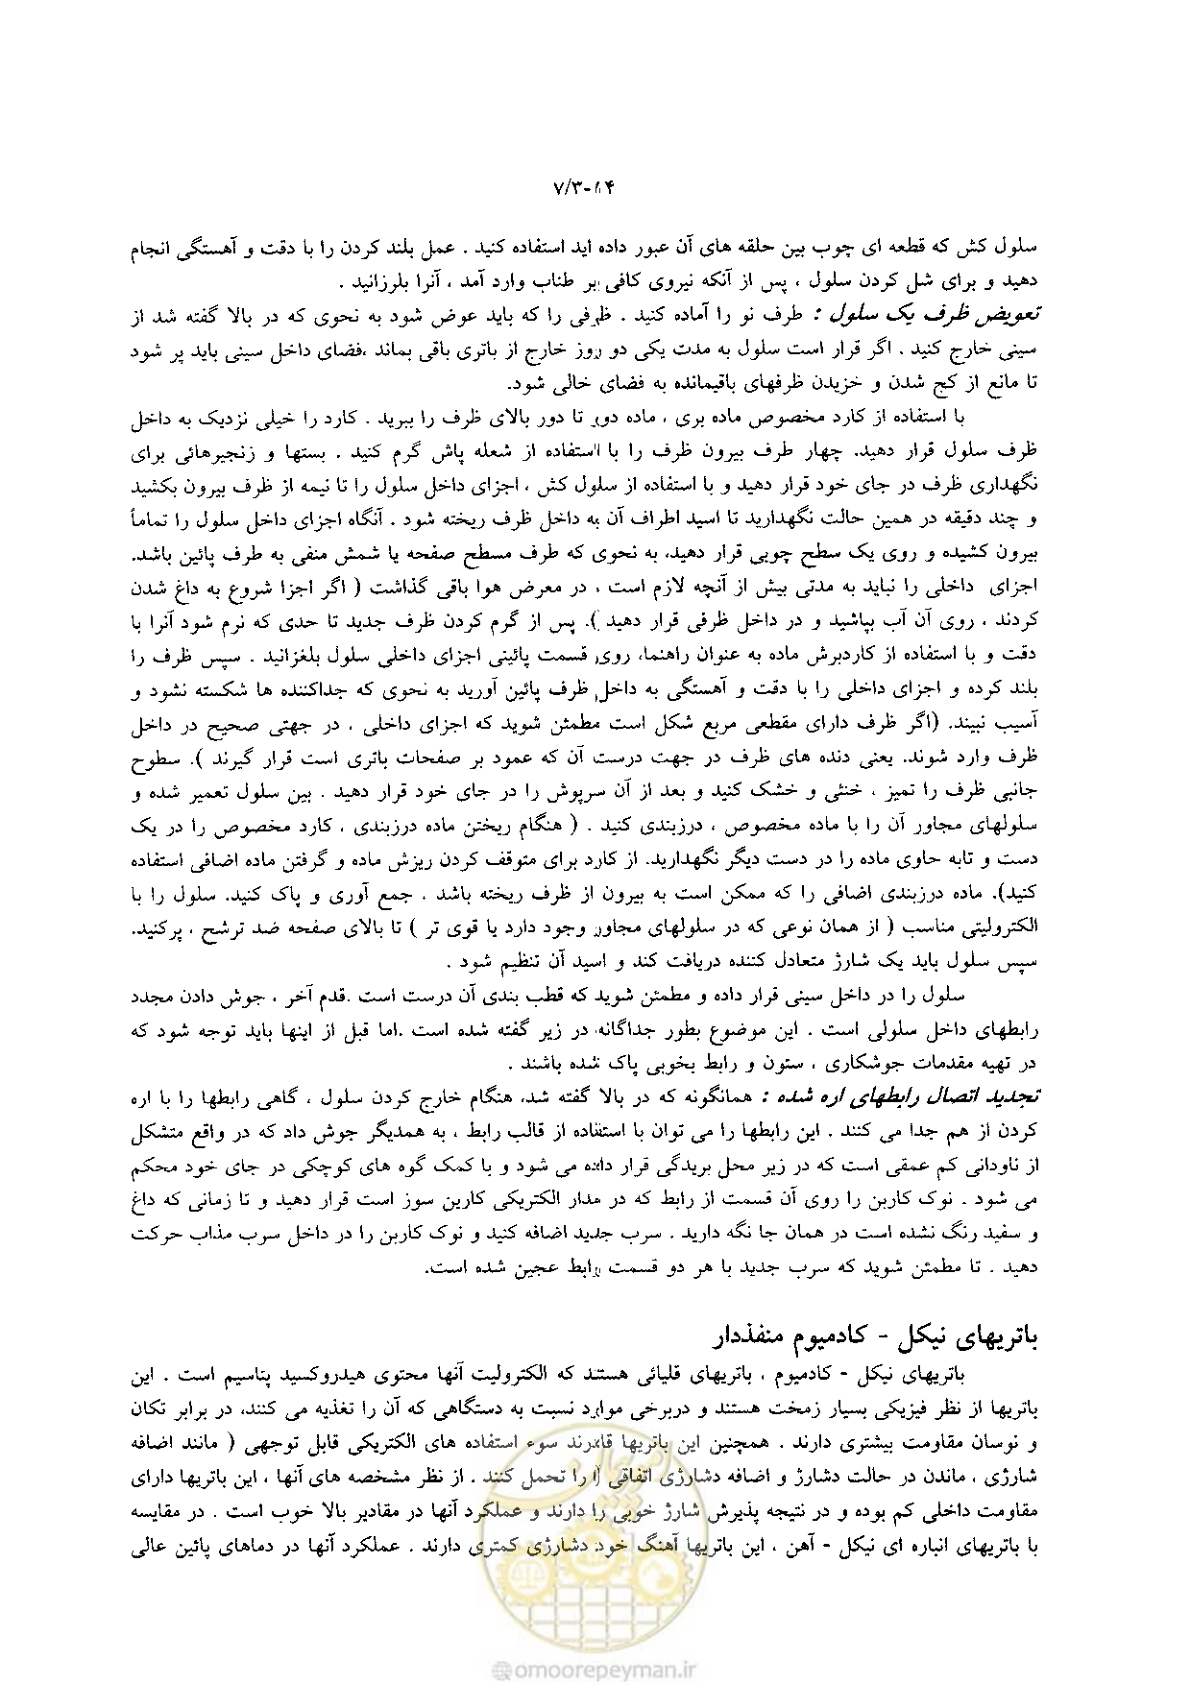 ۷/۳-۱۴
سلول کش که قطعه ای چوب بین حلقه های آن عبور داده اید استفاده کنید . عمل بلند کردن را با دقت و آهستگی انجام
دهید و برای شل کردن سلول ، پس از آنکه نیروی کافی بر طناب وارد آمد ، آنرا بلرزانید .
تعویض ظرف یک سلول : ظرف نو را آماده کنید . ظرفی را که باید عوض شود به نحوی که در بالا گفته شد از
سینی خارج کنید . اگر قرار است سلول به مدت یکی دو روز خارج از باتری باقی بماند ،فضای داخل سینی باید پر شود
تا مانع از کج شدن و خزیدن ظرفهای باقیمانده به فضای خالی شود.
با استفاده از کارد مخصوص ماده بری ، ماده دور تا دور بالای ظرف را ببرید . کارد را خیلی نزدیک به داخل
ظرف سلول قرار دهید. چهار طرف بیرون ظرف را با استفاده از شعله پاش گرم کنید . بستها و زنجیرهائی برای
نگهداری ظرف در جای خود قرار دهید و با استفاده از سلول کش ، اجزای داخل سلول را تا نیمه از ظرف بیرون بکشید
و چند دقیقه در همین حالت نگهدارید تا اسید اطراف آن به داخل ظرف ریخته شود . آنگاه اجزای داخل سلول را تماماً
بیرون کشیده و روی یک سطح چوبی قرار دهید، به نحوی که طرف مسطح صفحه یا شمش منفی به طرف پائین باشد.
اجزای داخلی را نباید به مدتی بیش از آنچه لازم است ، در معرض هوا باقی گذاشت ( اگر اجزا شروع به داغ شدن
کردند ، روی آن آب بپاشید و در داخل ظرفی قرار دهید ). پس از گرم کردن ظرف جدید تا حدی که نرم شود آنرا با
دقت و با استفاده از کاردبرش ماده به عنوان راهنما، روی قسمت پائینی اجزای داخلی سلول بلغزانید . سپس ظرف را
بلند کرده و اجزای داخلی را با دقت و آهستگی به داخل ظرف پائین آورید به نحوی که جداکننده ها شکسته نشود و
آسیب نبیند. (اگر ظرف دارای مقطعی مربع شکل است مطمئن شوید که اجزای داخلی ، در جهتی صحیح در داخل
ظرف وارد شوند. یعنی دنده های ظرف در جهت درست آن که عمود بر صفحات باتری است قرار گیرند ). سطوح
جانبی ظرف را تمیز ، خنثی و خشک کنید و بعد از آن سرپوش را در جای خود قرار دهید . بین سلول تعمیر شده و
سلولهای مجاور آن را با ماده مخصوص ، درزبندی کنید . ( هنگام ریختن ماده درزبندی ، کارد مخصوص را در یک
دست و تابه حاوی ماده را در دست دیگر نگهدارید. از کارد برای متوقف کردن ریزش ماده و گرفتن ماده اضافی استفاده
کنید). ماده درزبندی اضافی را که ممکن است به بیرون از ظرف ریخته باشد ، جمع آوری و پاک کنید. سلول را با
الکترولیتی مناسب ( از همان نوعی که در سلولهای مجاور وجود دارد یا قوی تر ) تا بالای صفحه ضد ترشح ، پرکنید.
سپس سلول باید یک شارژ متعادل کننده دریافت کند و اسید آن تنظیم شود .
سلول را در داخل سینی قرار داده و مطمئن شوید که قطب بندی آن درست است .قدم آخر ، جوش دادن مجدد
رابطهای داخل سلولی است . این موضوع بطور جداگانه در زیر گفته شده است .اما قبل از اینها باید توجه شود که
در تهیه مقدمات جوشکاری ، ستون و رابط بخوبی پاک شده باشند .
تجدید اتصال رابطهای اره شده : همانگونه که در بالا گفته شد، هنگام خارج کردن سلول ، گاهی رابطها را با اره
کردن از هم جدا می کنند . این رابطها را می توان با استفاده از قالب رابط ، به همدیگر جوش داد که در واقع متشکل
از ناودانی کم عمقی است که در زیر محل بریدگی قرار داده می شود و با کمک گوه های کوچکی در جای خود محکم
می شود . نوک کاربن را روی آن قسمت از رابط که در مدار الکتریکی کاربن سوز است قرار دهید و تا زمانی که داغ
و سفید رنگ نشده است در همان جا نگه دارید . سرب جدید اضافه کنید و نوک کاربن را در داخل سرب مذاب حرکت
دهید . تا مطمئن شوید که سرب جدید با هر دو قسمت رابط عجین شده است.
باتریهای نیکل - کادمیوم منفذدار
باتریهای نیکل - کادمیوم ، باتریهای قلیائی هستند که الکترولیت آنها محتوی هیدروکسید پتاسیم است . این
باتریها از نظر فیزیکی بسیار زمخت هستند و دربرخی موارد نسبت به دستگاهی که آن را تغذیه می کنند، در برابر تکان
و نوسان مقاومت بیشتری دارند . همچنین این باتریها قادرند سوء استفاده های الکتریکی قابل توجهی ( مانند اضافه
شارژی ، ماندن در حالت دشارژ و اضافه دشارژی اتفاقی ) را تحمل کنند . از نظر مشخصه های آنها ، این باتریها دارای
مقاومت داخلی کم بوده و در نتیجه پذیرش شارژ خوبی را دارند و عملکرد آنها در مقادیر بالا خوب است . در مقایسه
با باتریهای انباره ای نیکل - آهن ، این باتریها آهنگ خود دشارژی کمتری دارند . عملکرد آنها در دماهای پائین عالی
@omoorepeyman.ir